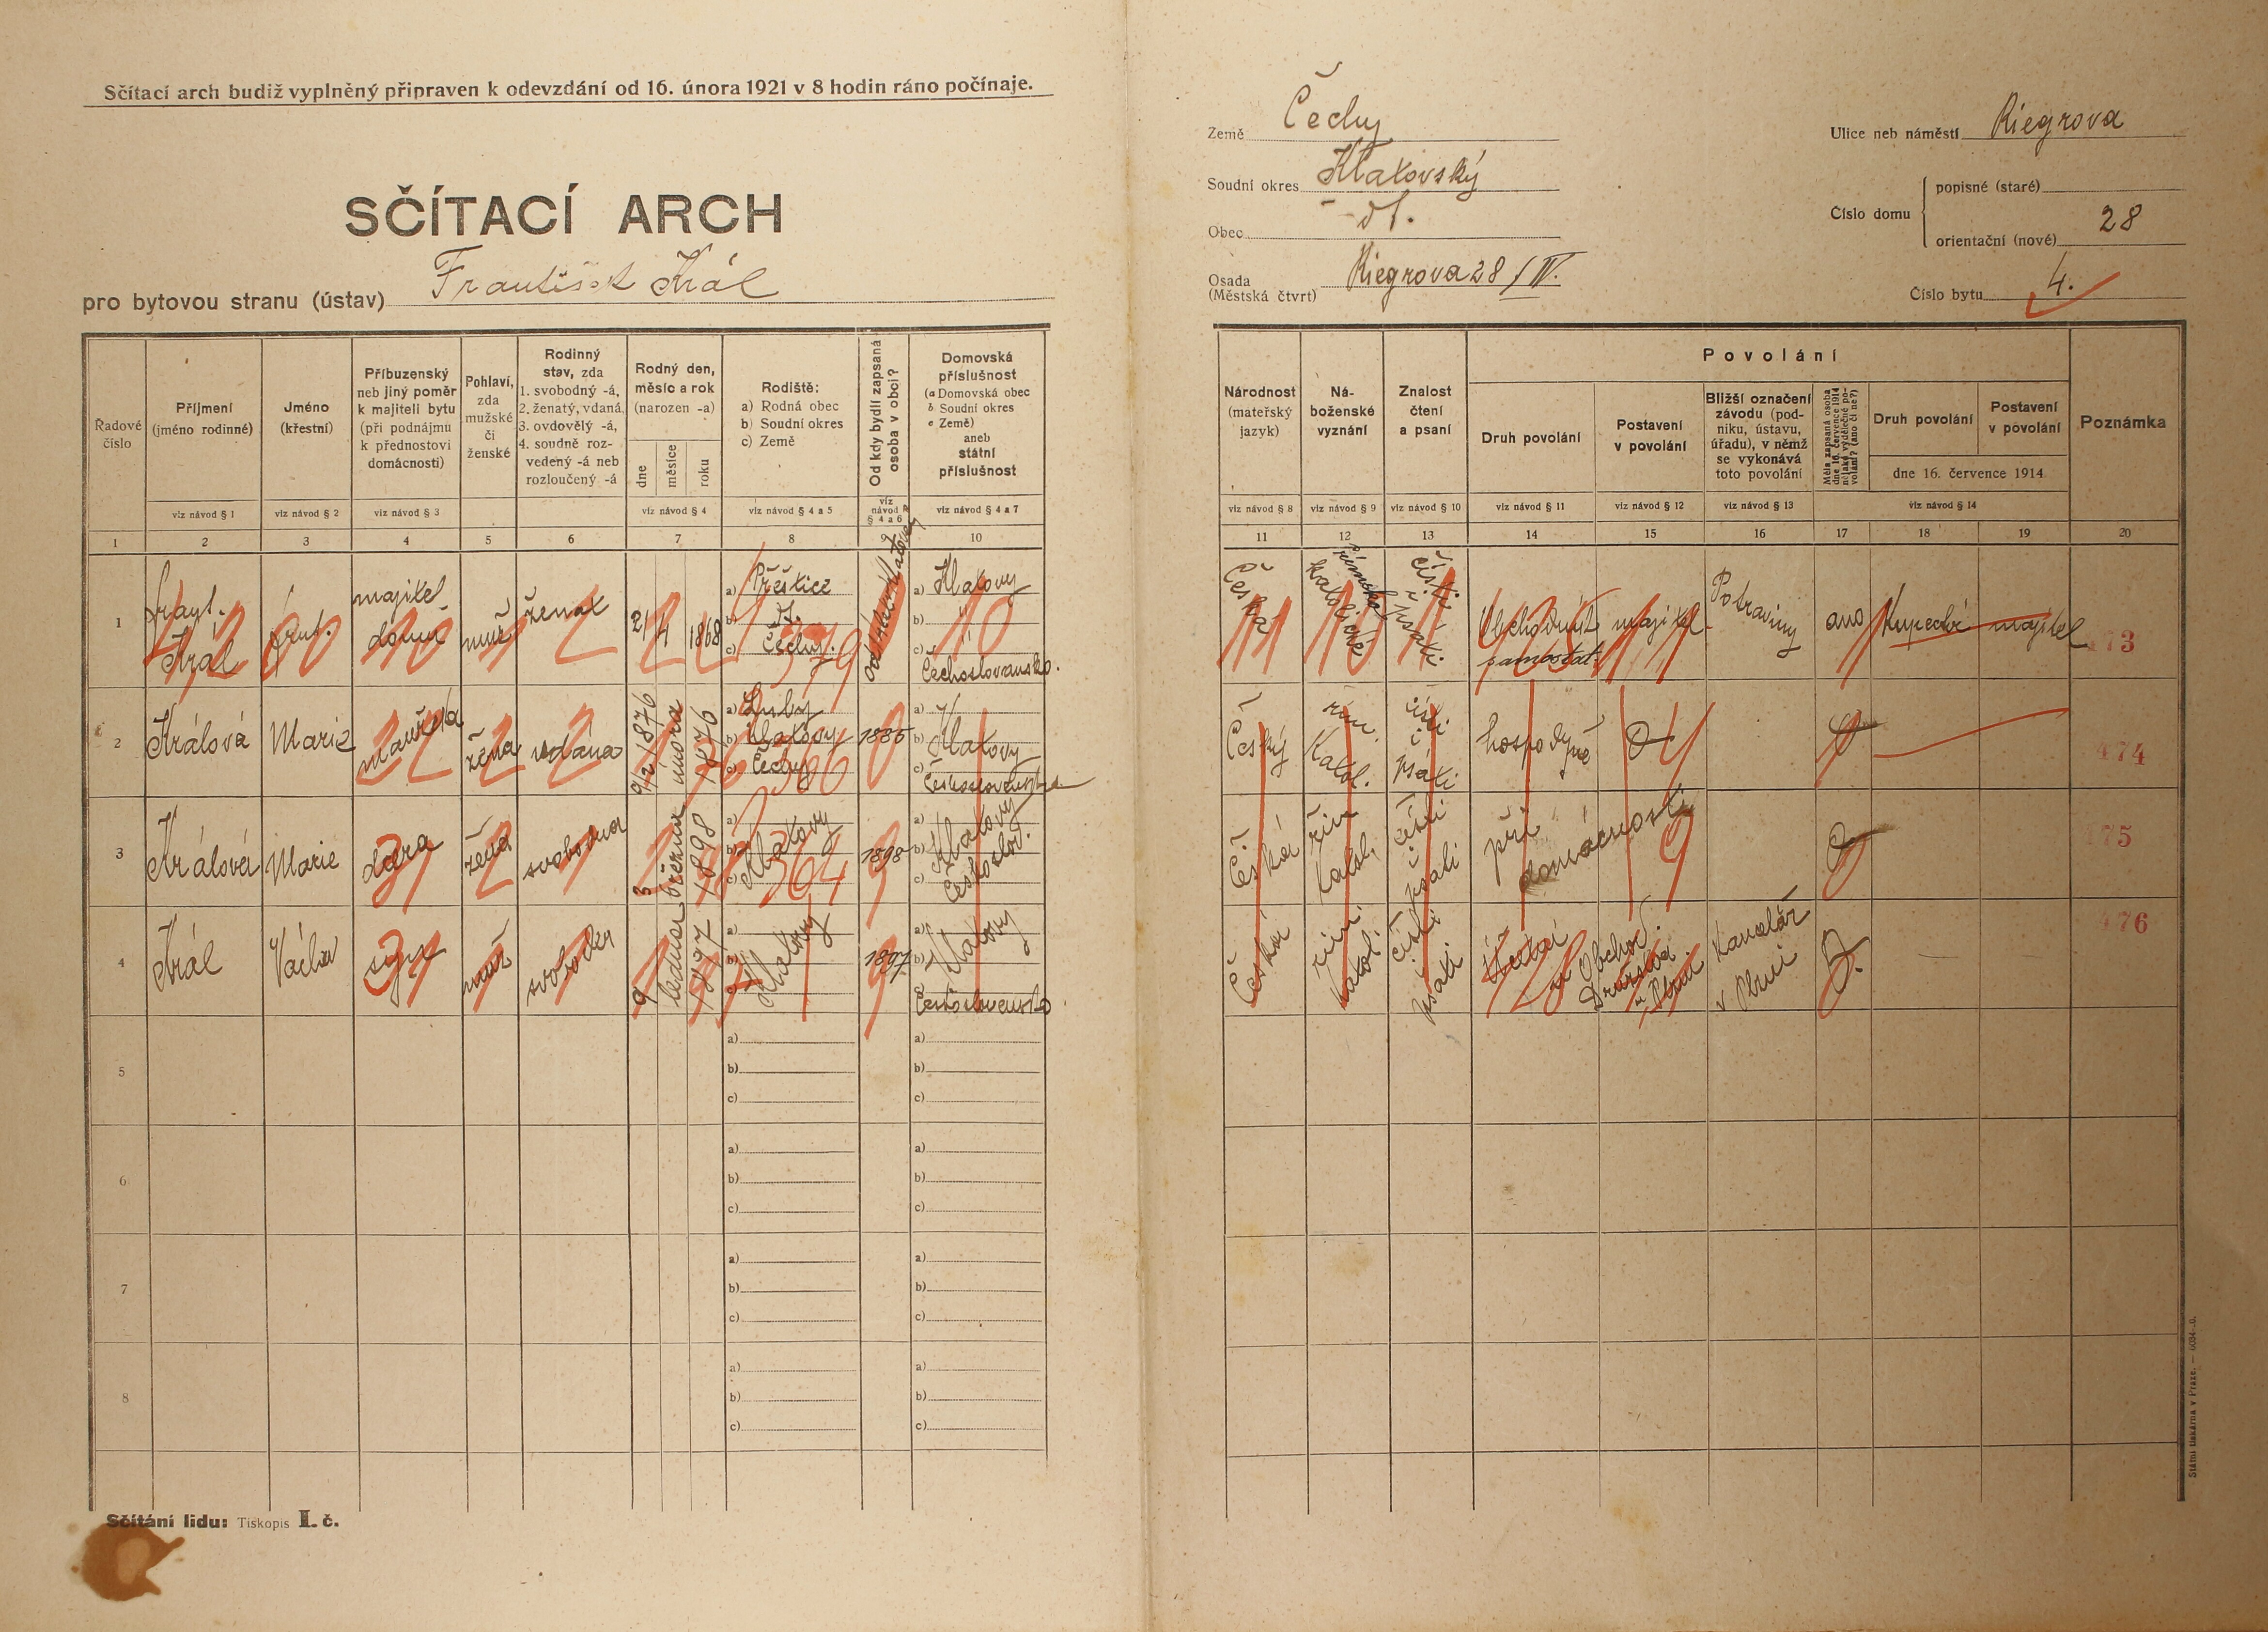 Sčítací arch budiž vyplněný připraven k odevzdání od 16. února 1921 v 8 hodin ráno počínaje.
SČÍTACÍ ARCH
pro bytovou stranu (ústav) František Král
Země Čechy
Soudní okres Klatovský
Obec dt.
Osada (Městská čtvrt) Riegrova 28/IV.
Ulice neb náměstí Riegrova
Číslo domu
popisné (staré)
orientační (nové) 28
Číslo bytu 4.
Řadové číslo
Příjmení (jméno rodinné)
Jméno (křestní)
Příbuzenský neb jiný poměr k majiteli bytu (při podnájmu k přednostovi domácnosti)
Pohlaví, zda mužské či ženské
Rodinný stav, zda 1. svobodný -á, 2. ženatý, vdaná, 3. ovdovělý -á, 4. soudně rozvedený -á neb rozloučený -á
Rodný den, měsíc a rok (narozen -a)
dne
měsíce
roku
Rodiště:
a) Rodná obec
b) Soudní okres
c) Země
Od kdy bydlí zapsaná osoba v obci?
Domovská příslušnost
(a Domovská obec
b Soudní okres
c Země)
aneb státní příslušnost
Národnost (mateřský jazyk)
Náboženské vyznání
Znalost čtení a psaní
Povolání
Druh povolání
Postavení v povolání
Bližší označení závodu (podniku, ústavu, úřadu), v němž se vykonává toto povolání
Měla zapsaná osoba dne 16. července 1914 nějaké výdělečné povolání? (ano či ne?)
Druh povolání
Postavení v povolání
dne 16. července 1914
Poznámka
viz návod § 1
viz návod § 2
viz návod § 3
viz návod § 4
viz návod § 4 a 5
viz návod § 4 a 6
viz návod § 4 a 7
viz návod § 8
viz návod § 9
viz návod § 10
viz návod § 11
viz návod § 12
viz návod § 13
viz návod § 14
1 2 3 4 5 6 7 8 9 10 11 12 13 14 15 16 17 18 19 20
1 Frant. Král Frnt. majitel domu muž ženat 21 4 1868 a) Přeštice b) dt. c) Čechy. a) Klatovy b) " c) " Čechoslovansko. Česká římsko katolické čísti psáti Obchodník samostat. majitel Potraviny ano Kupecké majitel 473
2 Králová Marie manželka žena vdána 9/2 1876 února 1876 a) Luby b) Klatovy c) Čechy 1885 Klatovy Český řím. Katol. čísti i psáti hospodyně 474
3 Králová Marie dcera žena svobodna 3 března 1898 Klatovy 1898 Klatovy Českoslov. Česká řím katol. čísti i psáti při domácnosti 475
4 Král Václav syn muž svoboden 9 ledna 1897 Klatovy 1897 Klatovy Československo Česká řím. katol. čísti psáti Obchod. Družstva v Plzni Kancelář v Plzni 476
5 a) b) c) a) b) c)
6 a) b) c) a) b) c)
7 a) b) c) a) b) c)
8 a) b) c) a) b) c)
Sčítání lidu: Tiskopis I. č.
Státní tiskárna v Praze.